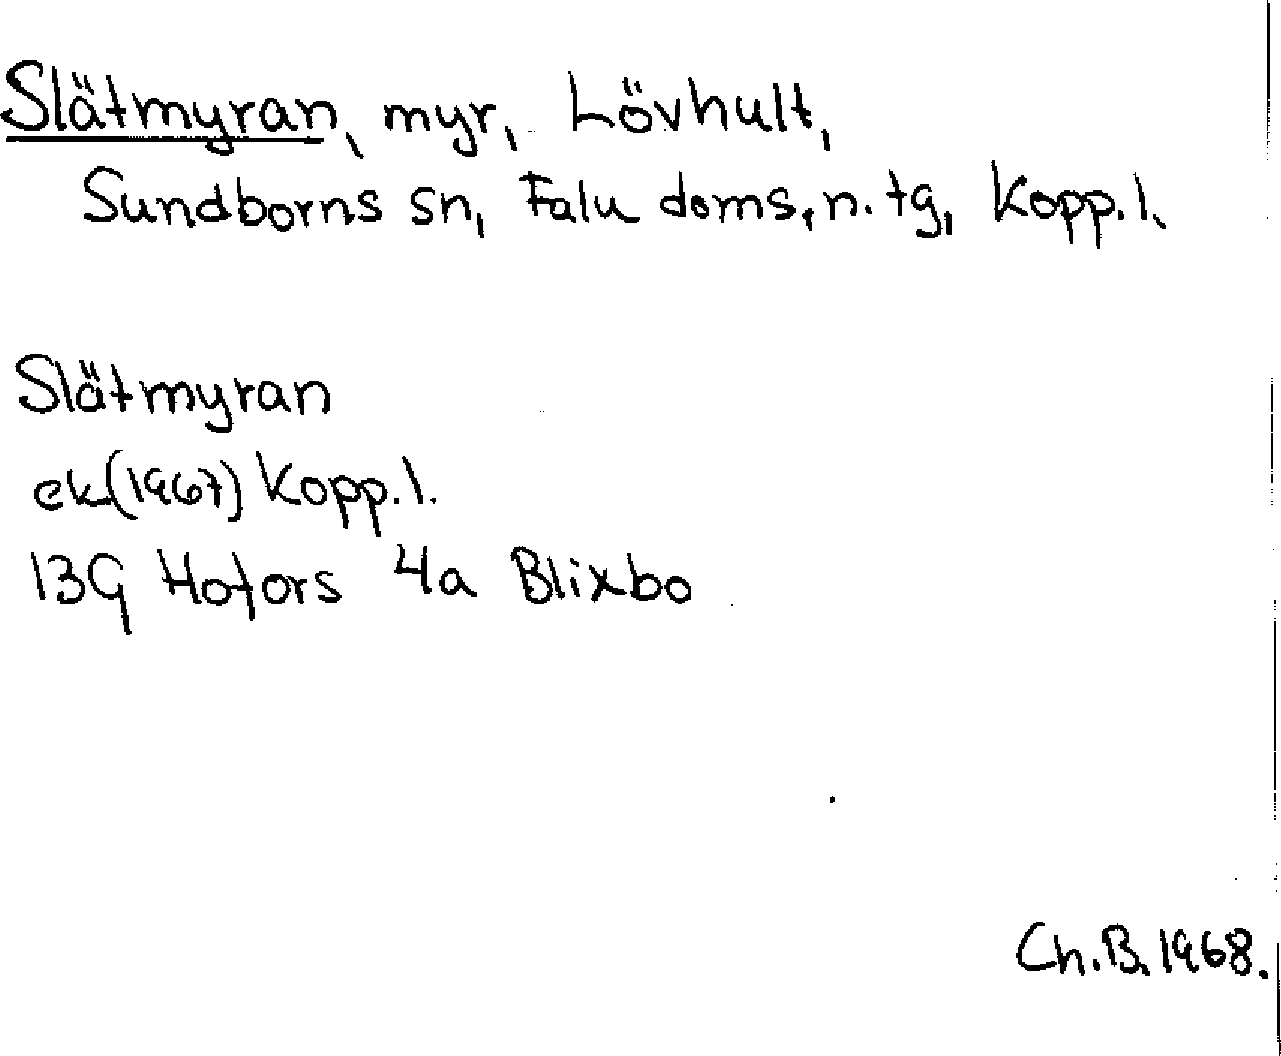 Slätmyran, myr, Lövhult,
Sundborns sn, Falu doms. n. tg, Kopp. l.
Slätmyran
ek (1967) Kopp. l.
13G Hofors 4a Blixbo
Ch. B. 1968.